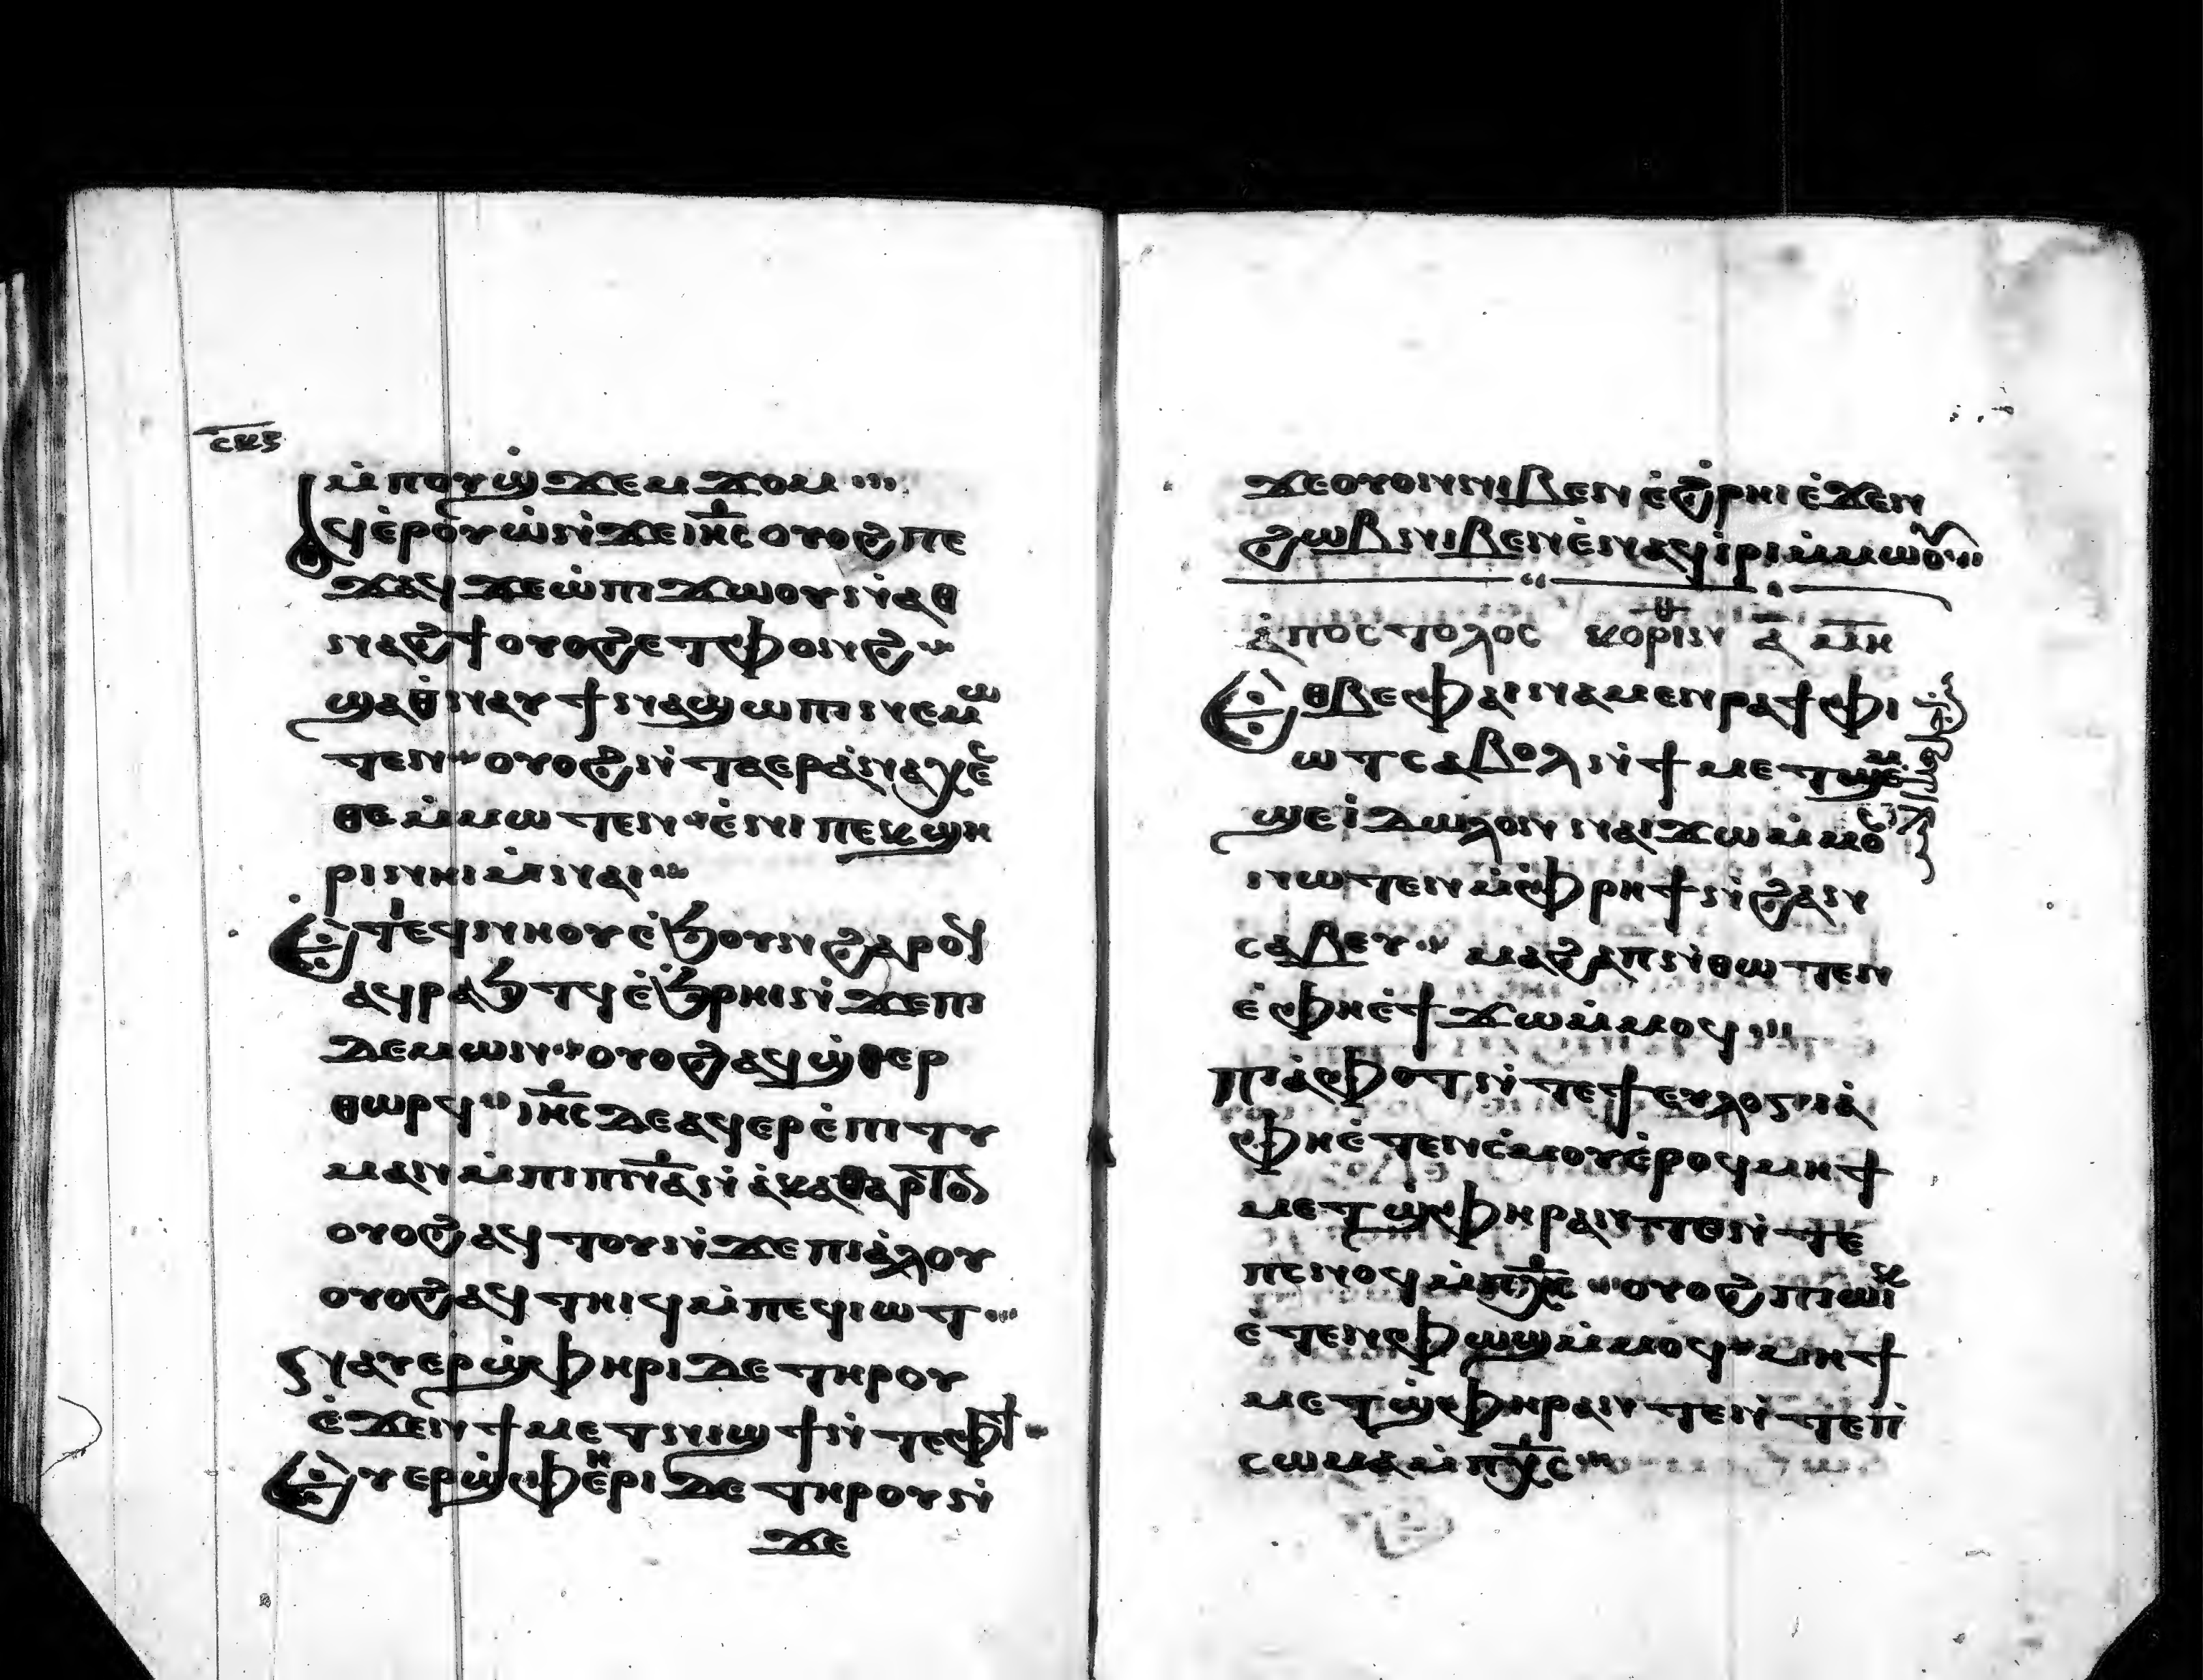 ⲥⲕⲋ
ⲙ̇ⲡⲟⲩϣ̇ϫⲉⲙϫⲟⲙ
ⲁϥⲉ̇ⲣⲟⲩⲱ̇ⲛ̇ϫⲉⲓⲏ̅ⲥ ⲟⲩⲟϩ ⲡⲉ
ϫⲁϥ ϫⲉ ⲱ̇ ⲡⲓϫⲱⲟⲩ ⲛ̇ⲁⲑ
ⲛⲁϩϯ ⲟⲩⲟϩ ⲉⲧⲫⲟⲛϩ
ϣⲁⲑ̇ⲛⲁⲩ ϯⲛⲁϣⲱⲡⲓ ⲛⲉⲙⲱ
ⲧⲉⲛ ⲟⲩⲟϩ ⲛ̇ⲧⲁⲉⲣⲁ̇ⲛⲁⲭⲉ̇ⲥ
ⲑⲉ ⲙ̇ⲙⲱⲧⲉⲛ ⲉ̇ⲛⲓ ⲡⲉⲕϣⲏ
ⲣⲓ ⲛⲏⲓ ⲙ̇ⲛⲁⲓ
ⲉⲧⲉϥⲛⲏⲟⲩ ⲉ̇ϧⲟⲩⲛ ϩⲁⲣⲟϥ
ⲁϥⲣⲁϧⲧϥ ⲉ̇ϧⲣⲏⲓ ⲛ̇ϫⲉⲡⲓ
ⲇⲉⲙⲱⲛ ⲟⲩⲟϩ ⲁϥϣ̇ⲑⲉⲣ
ⲑⲱⲣϥ ⲓⲏ̅ⲥ ⲇⲉ ⲁϥⲉⲣⲉ̇ⲡⲓⲧⲩ
ⲙⲁⲛ ⲙ̇ⲡⲓⲡⲛ̅ⲁ ⲛ̇ⲁ̇ⲕⲁⲑⲁⲣⲧⲟⲛ
ⲟⲩⲟϩ ⲁϥⲧⲟⲩⲛ̇ϫⲉ ⲡⲓⲁ̇ⲗⲟⲩ
ⲟⲩⲟϩ ⲁϥⲧⲏⲓϥ ⲙ̇ⲡⲉϥⲓⲱⲧ
ⲛⲁⲩⲉⲣϣ̇ⲫⲏⲣⲓ ⲇⲉ ⲧⲏⲣⲟⲩ
ⲉ̇ϫⲉⲛ ϯⲙⲉⲧⲛⲓϣϯ ⲛ̇ⲧⲉⲫϯ
ⲉⲩⲉⲣϣ̇ⲫⲏⲉ̇ⲣⲓ ⲇⲉ ⲧⲏⲣⲟⲩ ⲛ̇
ϫⲉ
ϫⲉⲟⲩⲟⲛ ⲛⲓⲃⲉⲛ ⲉ̇ϩ̇ⲣⲏⲓ ⲉ̇ϫⲉⲛ
ϩⲱⲃ ⲛⲓⲃⲉⲛ ⲉ̇ⲛⲁϥⲓ̇ⲣⲓ ⲙ̇ⲙⲱⲟⲩ
ⲁ̇ⲡⲟⲥⲧⲟⲗⲟⲥ ⲕⲟⲣⲓⲛⲑ ⲁ̅ ⲙ̅ⲏ
ⲉⲑⲃⲉ ⲫⲁⲓ ⲛⲁⲙⲉⲛⲣⲁϯ ⲫⲓ
ⲱⲧ ⲥⲁⲃⲟⲗ ⲛ̇ϯⲙⲉⲧϣⲉⲙ
ϣⲉ ⲓ̇ⲇⲱⲗⲟⲛ ⲛⲁⲓϫⲱ ⲙ̇ⲙⲟ
ⲛⲱⲧⲉⲛ ⲙ̇ⲫⲣⲏϯ ⲛ̇ϩⲁⲛ
ⲥⲁⲃⲉⲩ ⲙⲁϩⲁⲡ ⲛ̇ⲑⲱⲧⲉⲛ
ⲉ̇ⲫⲏ ⲉ̇ϯϫⲱ ⲙ̇ⲙⲟϥ
ⲡⲓⲁ̇ⲫⲟⲧ ⲛ̇ⲧⲉ ϯⲉⲩⲗⲟⲅⲓⲁ̇
ⲫⲏ ⲉ̇ⲧⲉⲛⲥ̇ⲙⲟⲩ ⲉ̇ⲣⲟϥ ⲙⲏ ϯ
ⲙⲉⲧϣ̇ⲫⲏⲣ ⲁⲛ ⲧⲉ ⲛ̇ⲧⲉ
ⲡⲥⲛⲟϥ ⲙ̇ⲡⲭ̅ⲥ ⲟⲩⲟϩ ⲡⲓⲱⲓⲕ
ⲉ̇ⲧⲉⲛⲫⲱϣ ⲙ̇ⲙⲟϥ ⲙⲏ ϯ
ⲙⲉⲧϣ̇ⲫⲏⲣ ⲁⲛ ⲧⲉ ⲛ̇ⲧⲉ ⲡⲓ
ⲥⲱⲙⲁ ⲙ̇ⲡⲭ̅ⲥ